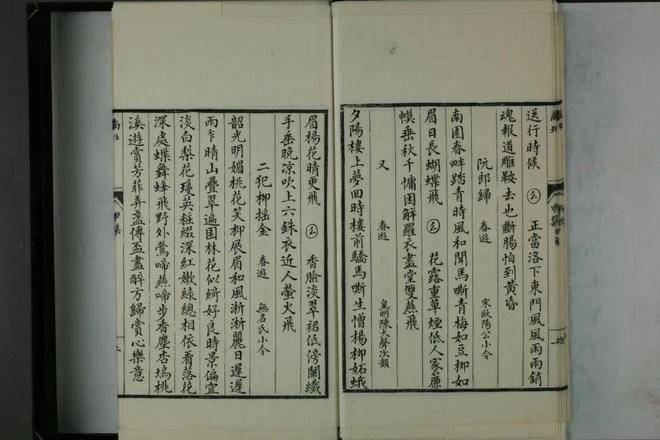 送行時候　　正當洛下東門風風雨雨銷
魂報道雕鞍去也斷腸怕到黃昏
阮郎歸　春遊　宋歐陽公小令
南園春畔踏青時風和聞馬嘶青梅如豆柳如
眉日長蝴蝶飛　　花露重草煙低人家簾
幙垂秋千慵困解羅衣畫堂雙燕飛
又　春遊　皇明陳大聲次韻
夕陽樓上夢回時樓前驕馬嘶生憎楊柳妬蛾
眉楊花晴更飛　　香臉淡翠裙低傍闌纖
手垂晚凉吹上六銖衣近人螢火飛
二犯柳搖金　春遊　無名氏小令
韶光明媚桃花笑柳展眉和風淅淅麗日遲遲
雨乍晴山疊翠遍園林花似綺好良時景偏宜
淡白梨花瓊英粧綴深紅嫩綠總相依看落花
深處蝶舞蜂飛野外鶯啼燕啼步香塵杏塢桃
溪遊賞芳菲弄盞傳盃盡醉方歸賞心樂意